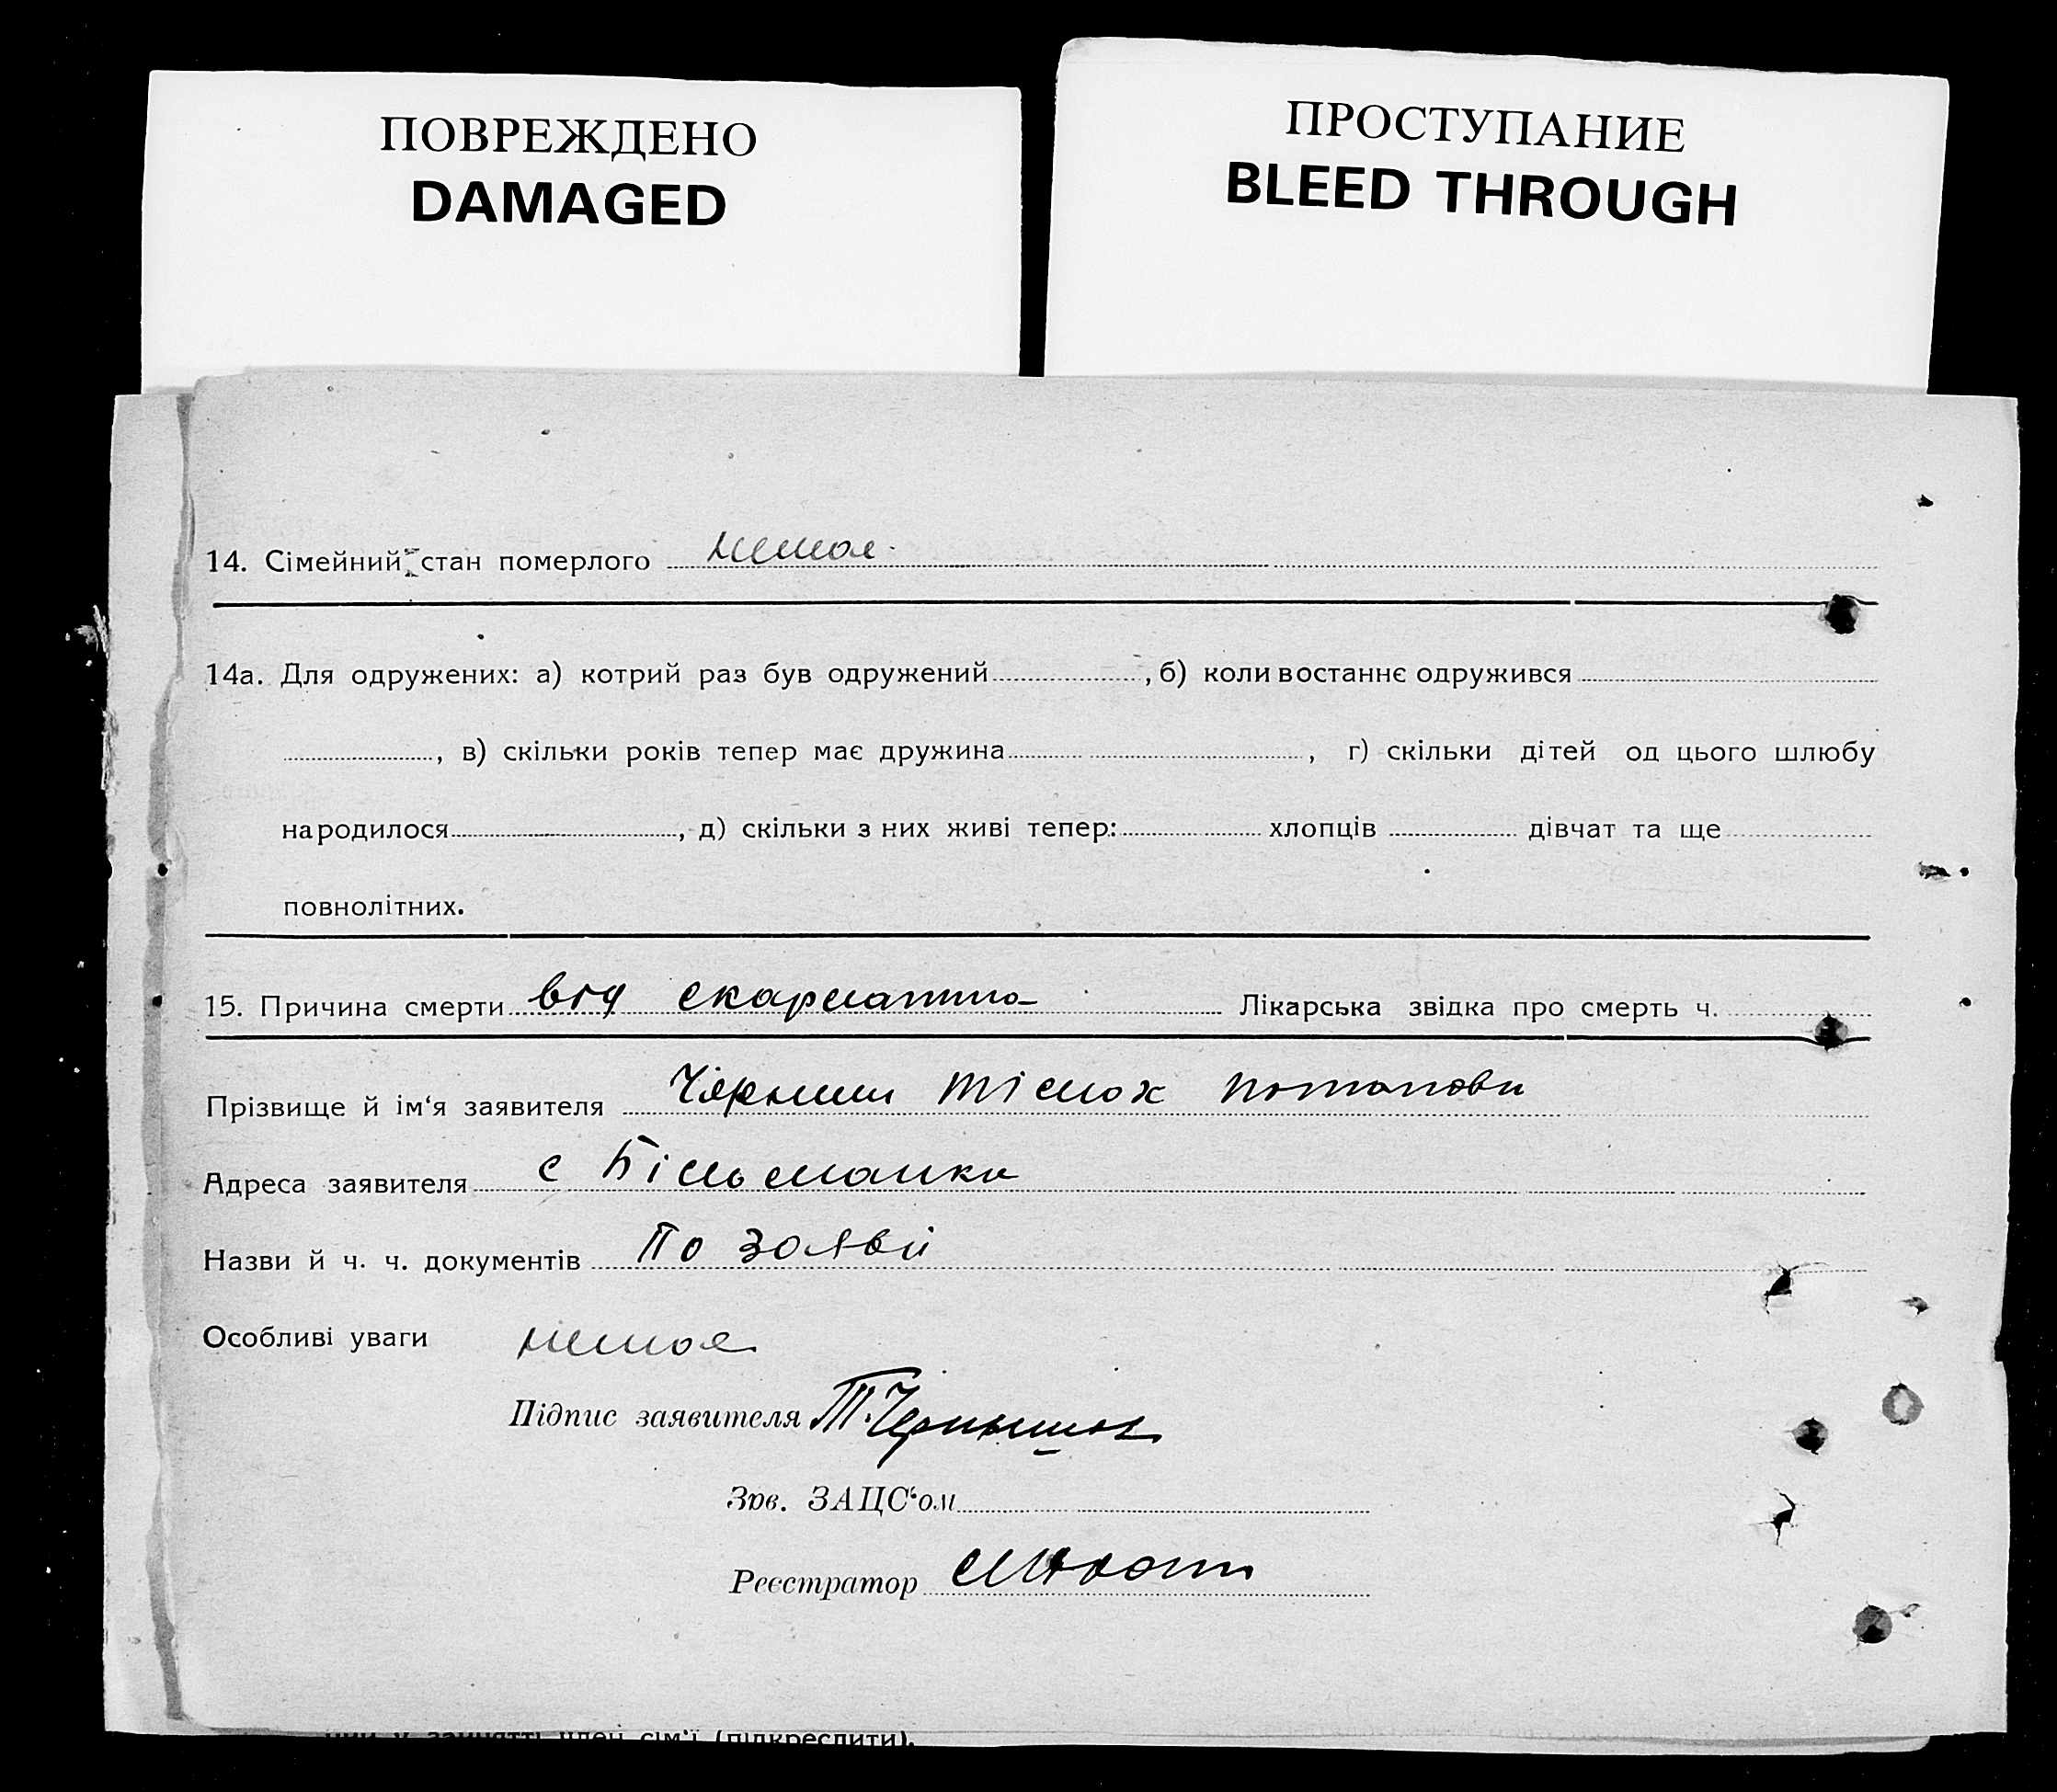 ПОВРЕЖДЕНО
DAMAGED
ПРОСТУПАНИЕ
BLEED THROUGH
14. Сімейний стан померлого немає
14а. Для одружених: а) котрий раз був одружений , б) коли востаннє одружився
, в) скільки років тепер має дружина , г) скільки дітей од цього шлюбу
народилося , д) скільки з них живі тепер: хлопців дівчат та ще
повнолітних.
15. Причина смерти від скарлатина Лікарська звідка про смерть ч.
Прізвище й ім'я заявителя Тімох
Адреса заявителя с Більманка
Назви й ч. ч. документів По заяві
Особливі уваги немає
Підпис заявителя Т.
Зав. ЗАЦС'ом
Реєстратор
у занятті член сім'ї (підкреслити).